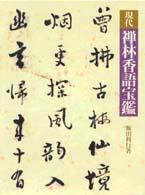 現代
禅林香語宝鑑
飯田利行著
曾拂古仙境
烟霞探風韻入
幽玄歸来十